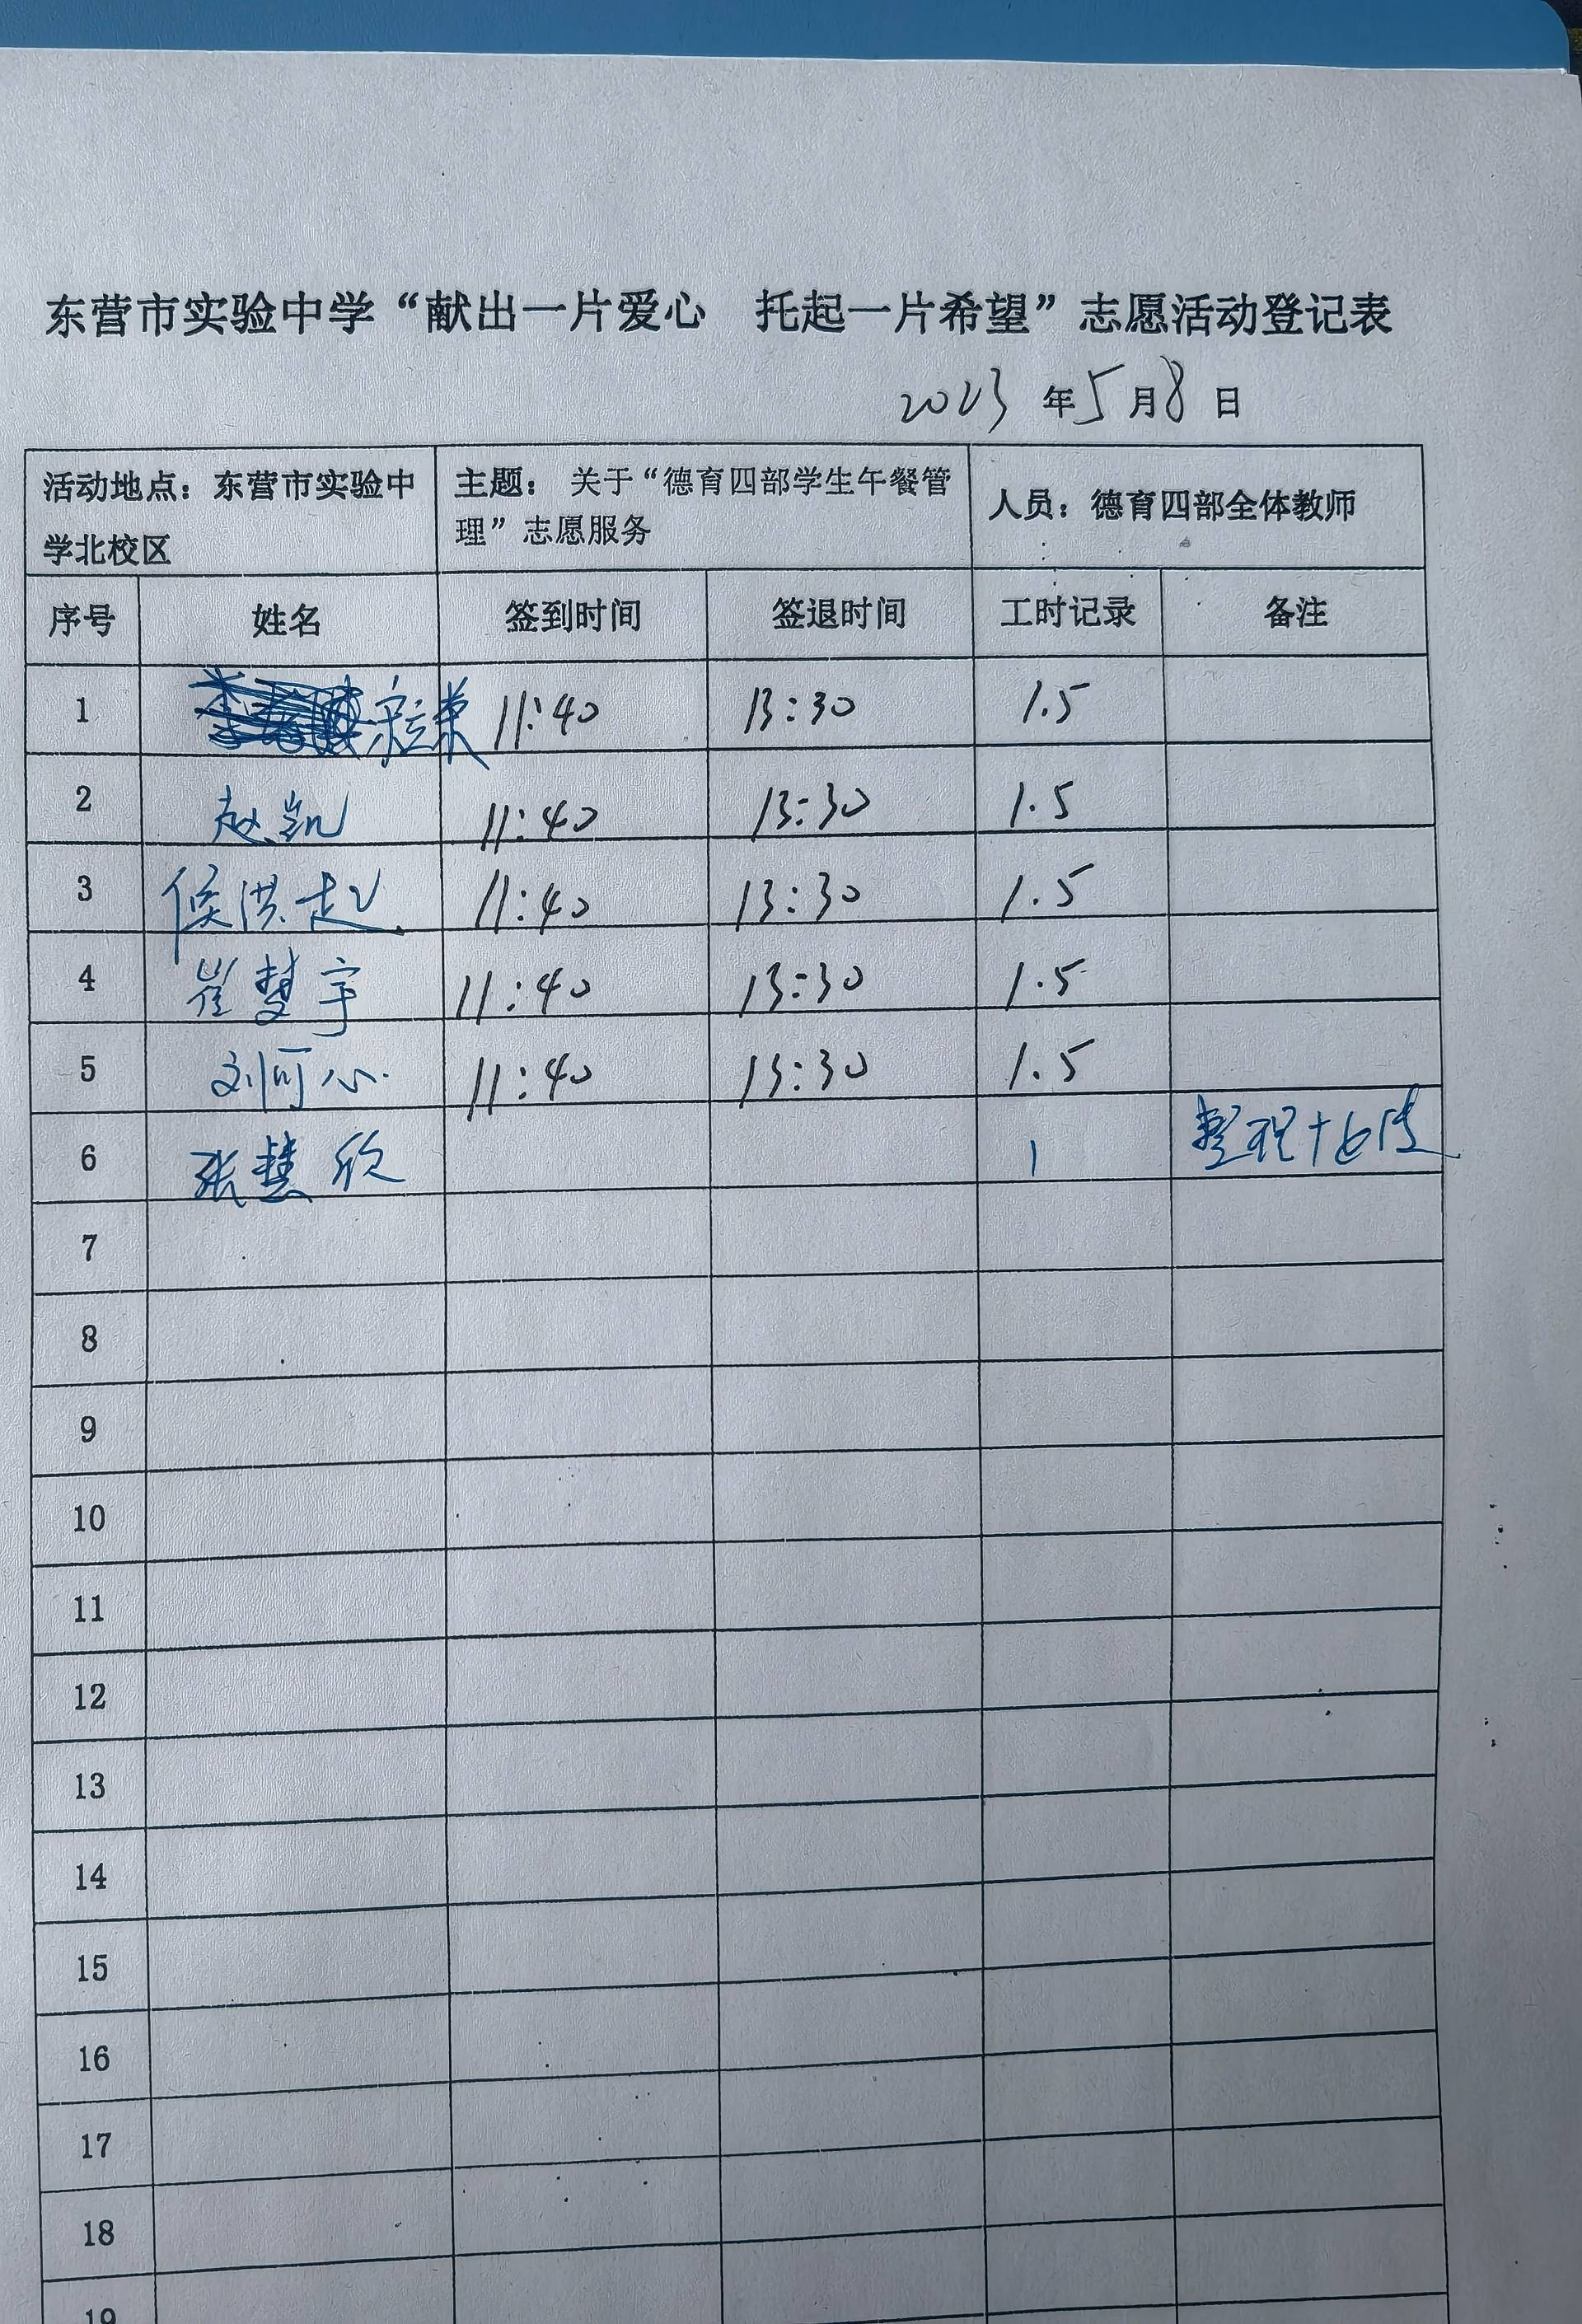 东营市实验中学“献出一片爱心 托起一片希望”志愿活动登记表
2023年5月8日
活动地点：东营市实验中学北校区 主题：关于“德育四部学生午餐管理”志愿服务 人员：德育四部全体教师
序号 姓名 签到时间 签退时间 工时记录 备注
1 11:40 13:30 1.5
2 赵凯 11:40 13:30 1.5
3 侯洪起 11:40 13:30 1.5
4 崔慧宇 11:40 13:30 1.5
5 刘可心 11:40 13:30 1.5
6 张慧欣 1 整理
7
8
9
10
11
12
13
14
15
16
17
18
19